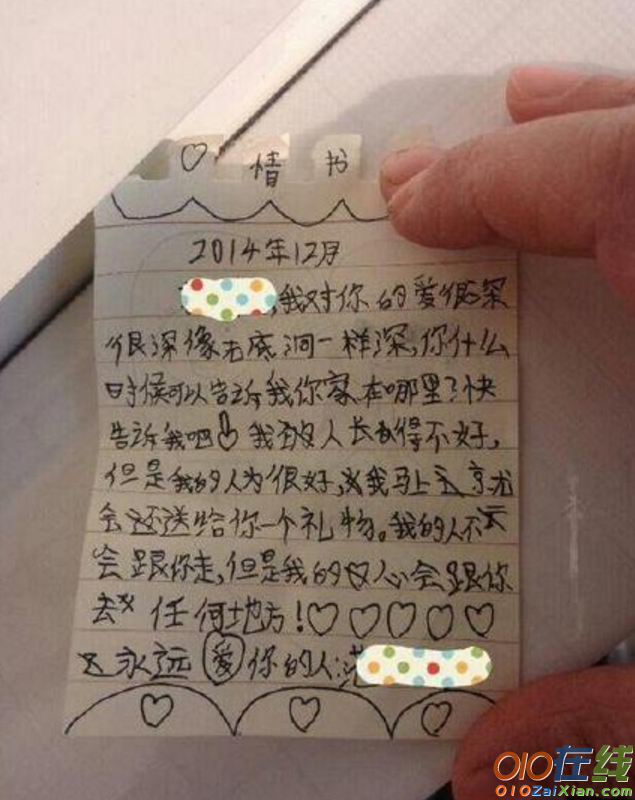 ♡ 情 书
2014年12月
,我对你的爱很深
很深像无底洞一样深,你什么
时候可以告诉我你家有哪里?快
告诉我吧 我 人长 得不好,
但是我的人为很好,我马上
会还送给你一个礼物。我的人不
会跟你走,但是我的 心会跟你
去 任何地方!♡♡♡♡♡
永远爱你的人:
♡ ♡ ♡
010在线
010ZaiXian.com